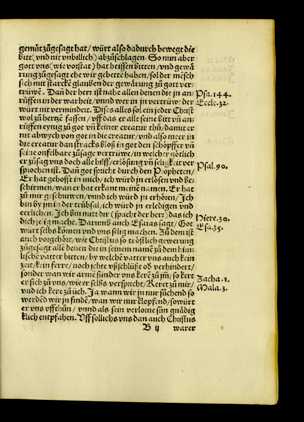 gemüt zůgesagt hat / würt also dadurch bewegt die
bitt / vnd nit vnbillich) abzůschlagen. So nun aber
gott vns (wie vorstat) hat heissen bitten / vnd gewä
rung zůgesagt ehe wir gebettet haben / sol der mēsch
sich mit starckē glauben der gewärung zů gott ver
trüwē. Dan der herr ist nahe allen denen die jn an
rüffen jn der warheit / vnnd wer in jn vertrüw / der
würt nit verminden. Diß als sol ein jeder Christ
wol zů hertzē fassen / vff das er alle seine bitt vñ an
rüffen eynig zů got vñ keiner creatur thů / damit er
nit abwych von got in die creatur / vnd also meer in
die creatur dan stracks bloß in got den schöpffer vñ
seine zůsage vertrüwe / in welcher
er zů sag vns doch alle hilff / erlösung vñ seligkait ver
sprochen ist. Dan got spricht durch den Propheten /
Er hat gehofft in mich / ich würd jn erlösen vnd be-
schirmen / wan er hat erkant meinē namen. Er hat
zů mir geschruwen / vnnd ich würd jn erhören / Ich
bin by jm in der trübsal / ich würd jn erledigen vnd
eerlichen. Ich bin mitt dir (spricht der herr) das ich
dich selig mach. Darumb auch Esaias sagt / Got
würt selbs kōmen vnd vns selig machen. Zů dem ist
auch vorgehört / wie Christus so trōstlich gewerung
zůgesagt alle denen die in seinem namē zů dem him
lischē vatter bitten / by welchē vatter vns auch kein
zeit / kein ferre / noch jchte
sonder wan wir arme sünder vns kerē zů jm / so kert
er sich zů vns / wie er selbs verspricht / Keret zů mir /
vnd ich kere zů üch. Ja wann wir in nur sůchend so
werdē wir jn findē / wan wir nur klopfend / so würt
er vns vffthůn / vnnd als sein verlorne sün gnädig
klich entpfahen. Vff sollichs vns dan auch Christus
B ij warer
Psa. 144.
Eccle. 32.
Psal. 90.
Hiere. 30.
Esa. 35.
Zacha. 1.
Mala. 3.